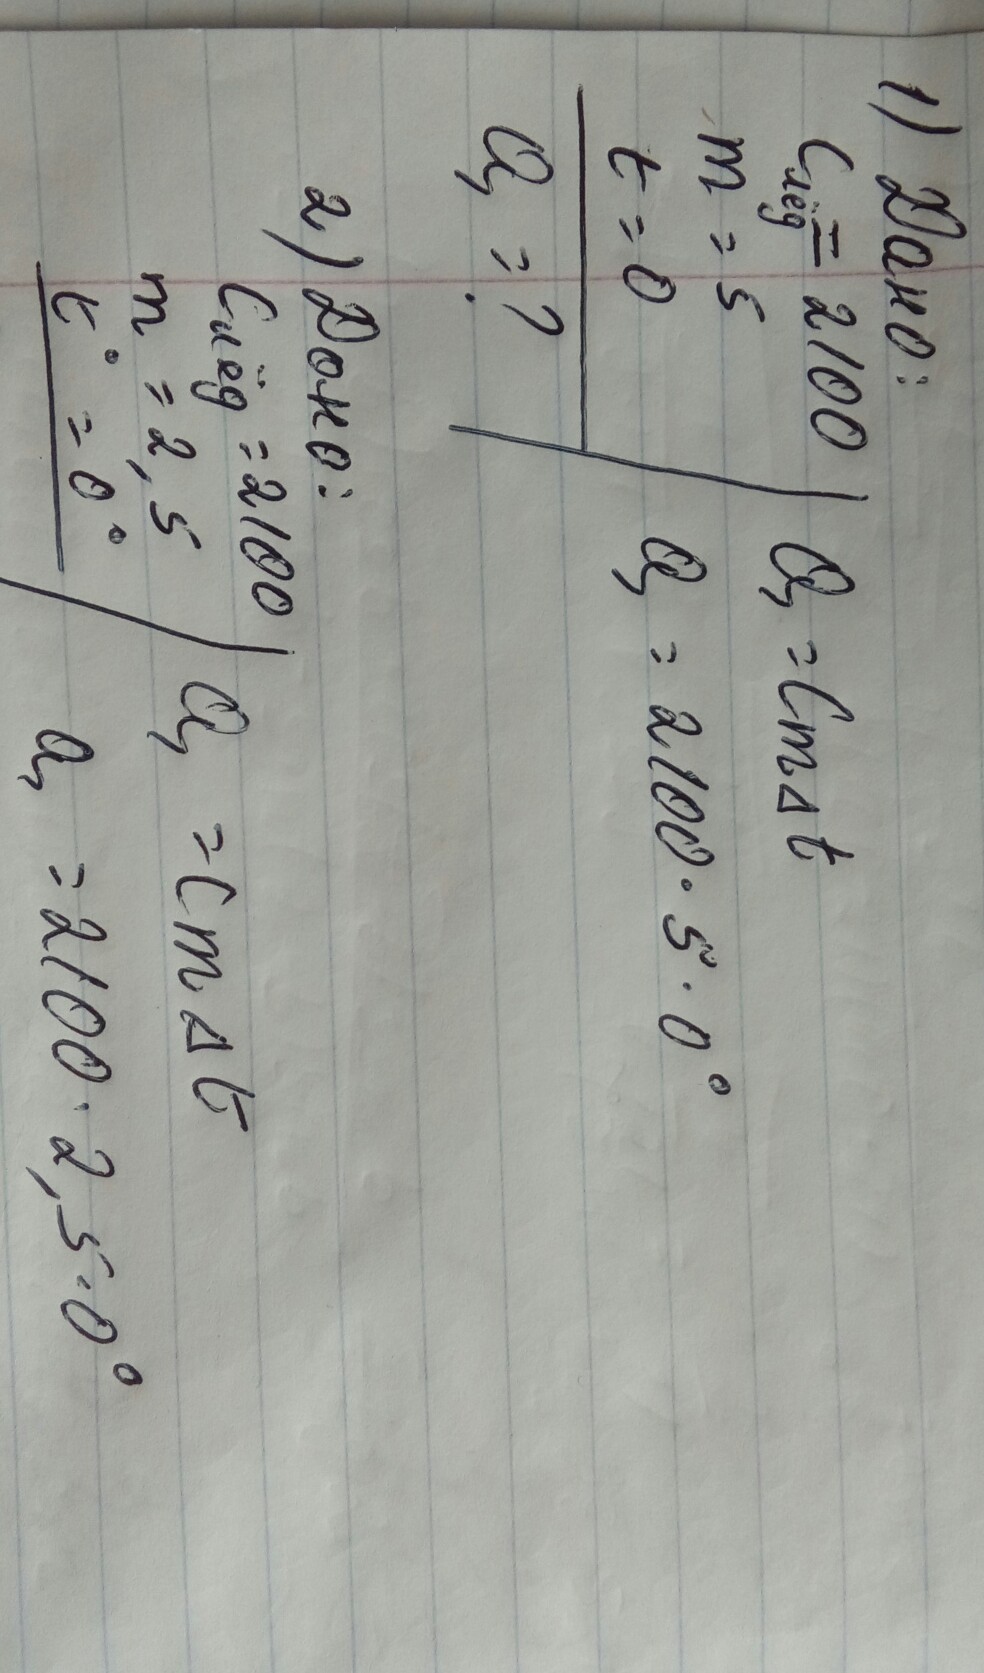 1) Дано:
Cлёд = 2100
m = 5
t = 0
Q₁ = ?
Q₁ = Cm∆t
Q₁ = 2100 · 5 · 0°
2) Дано:
Cлёд = 2100
m = 2,5
t° = 0°
Q₁ = Cm∆t
Q₁ = 2100 · 2,5 · 0°